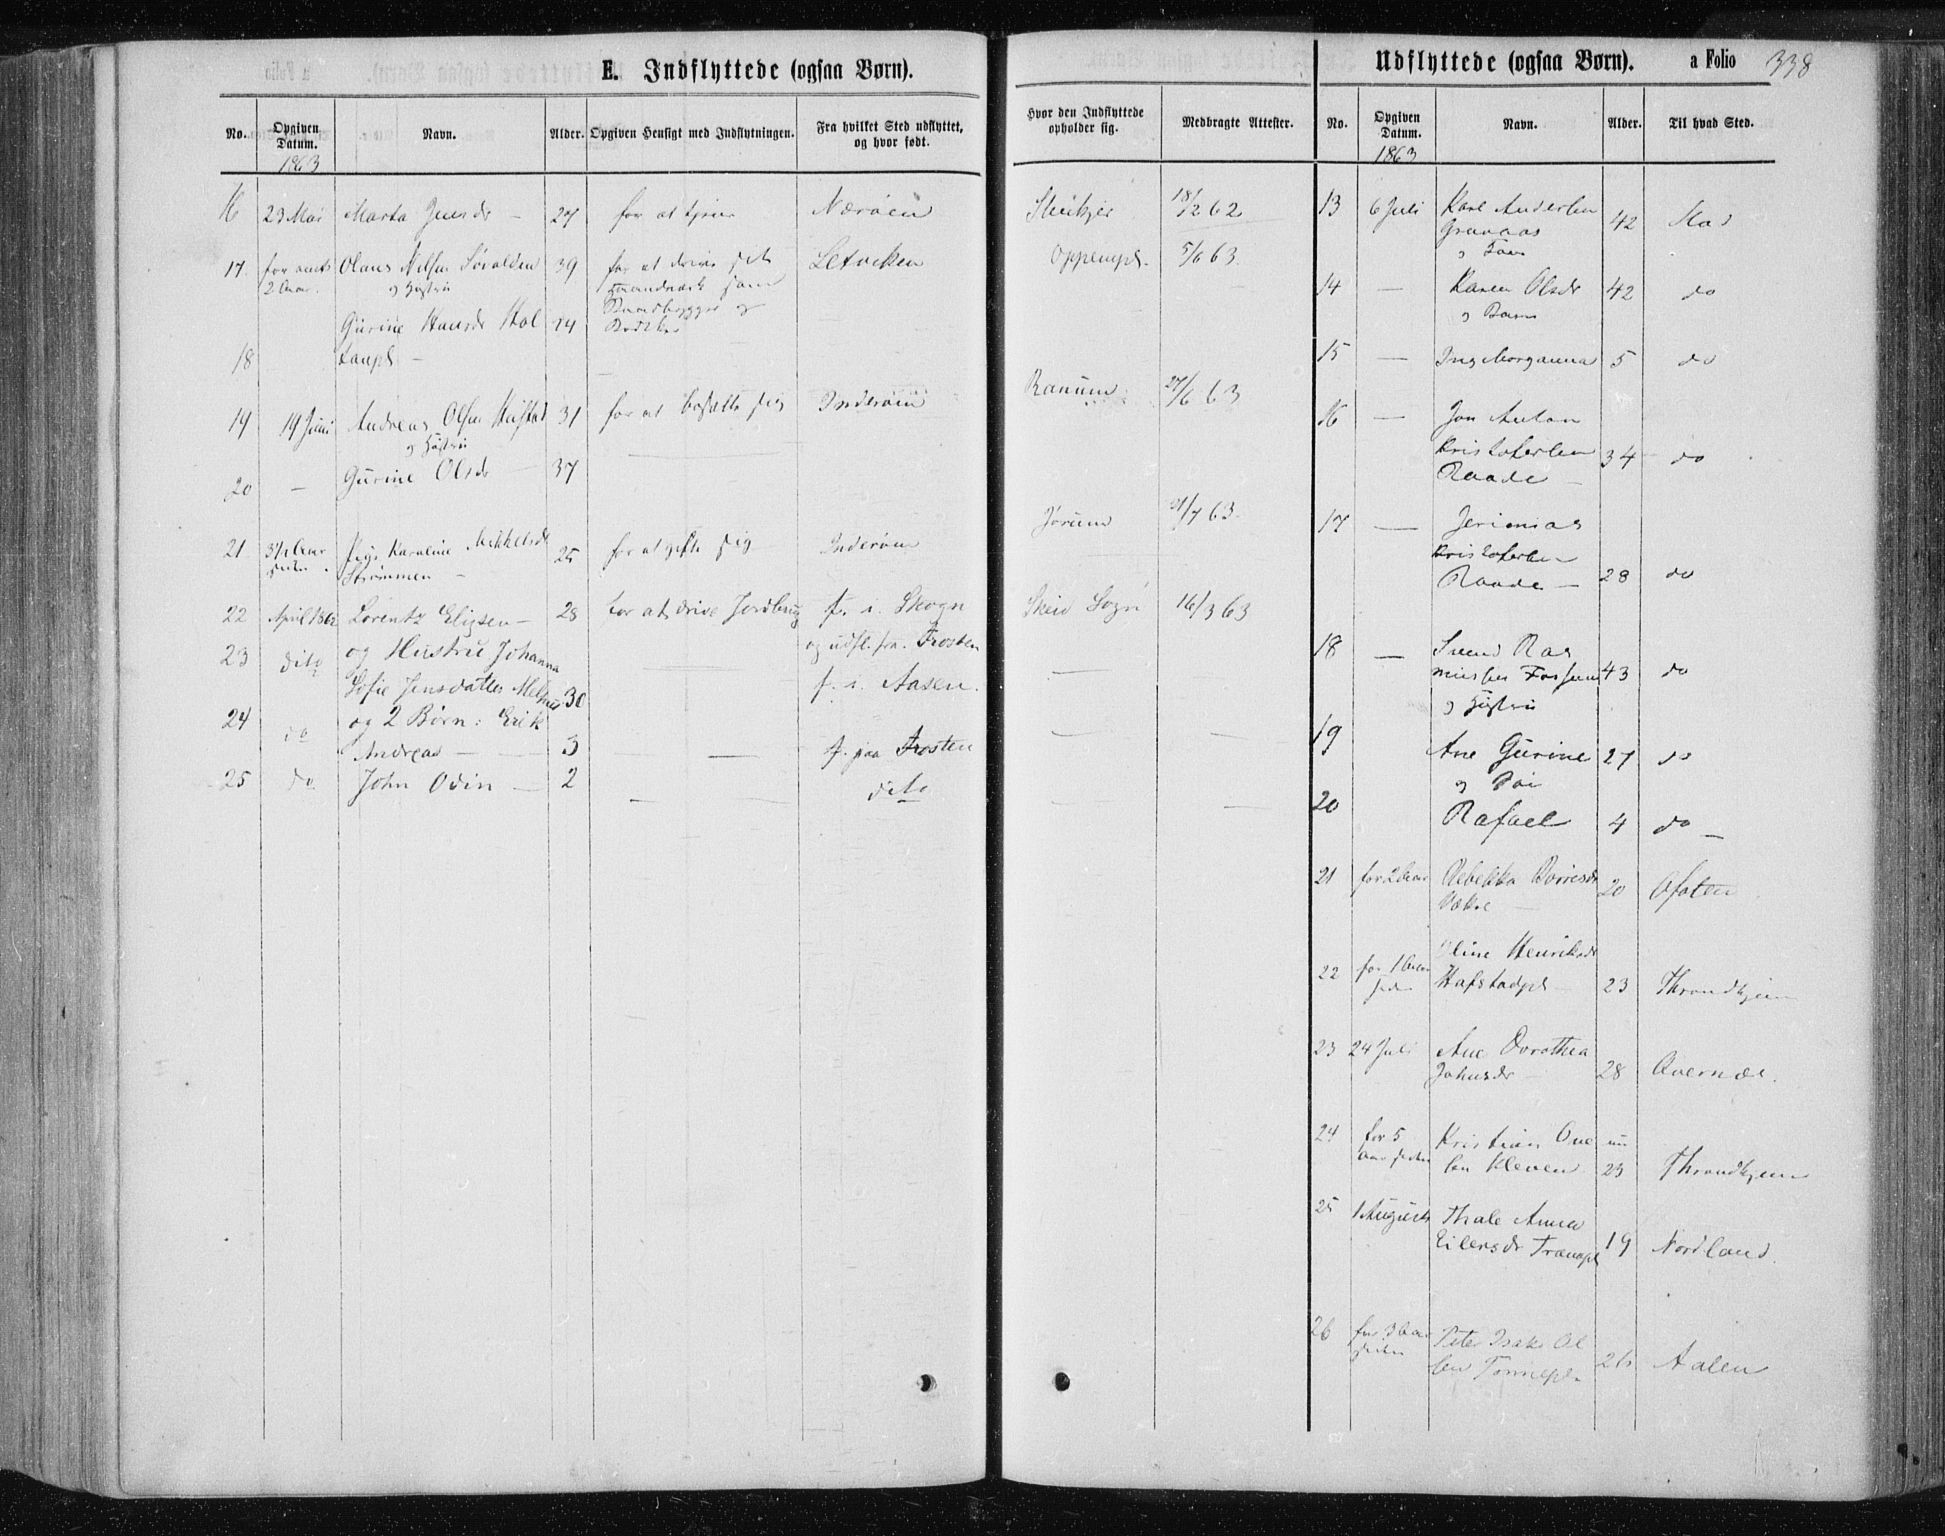 E. Indflyttede (ogsaa Børn).
No. Opgiven Datum. Navn. Alder. Opgiven Hensigt med Indflytningen. Fra hvilket Sted udflyttet, og hvor født. Hvor den Indflyttede opholder sig. Medbragte Attester.
1863
16 23 Mai Marta Jensdr - 27 for at tjene Nærøen 18/2 62
17 Olaus Nilsen 39 for at drive sit Oppempl. 5/6 63
2 Aar. og Hustru Haandværk som
Gurine Hansdr Hol 24 Baandbygger og
18 taapl - Bødker
19 19 Juni Andreas Olsen 31 for at bosætte sig Inderøen Ranum 27/6 63
og Hustru
20 - Gurine Olsdr - 37
21 3½ Aar Karoline Mikkelsdr 25 for at gifte sig Inderøen Jørum 21/7 63
siden Strømmen -
22 April 1862 Lorentz Eligsen - 28 for at drive Jordbrug f. i. Skogn Skeid Sogn 16/3 63
og udfl. fra. Frosten
23 dito og Hustru Johanna
Sofie Jensdatter 30 f. i. Aasen.
24 do og 2 Børn: Erik
Andreas - 3 f. paa Frosten
25 do John Odin - 2 dito
Udflyttede (ogsaa Børn). a Folio 338
No. Opgiven Datum. Navn. Alder. Til hvad Sted.
1863
13 6 Juli Karl Andersen
Granaas 42 Stod
og Fam
14 - Karen Olsdr 42 do
og Barn
15 - Ing Morganna 5 do
16 - Jon Anton
Kristofersen 34 do
Raade -
17 - Jerimias
Kristofersen
Raade - 28 do
18 - Svend Ras
mussen Forsem 43 do
og Hustru
19 Ane Gurine 27 do
og
20 Rafael 4 do -
21 for 2 Aar Rebekka 20 Ofoten
22 for 1 Aar Oline Henriksdr
siden Hafstadpl - 23 Throndhjem
23 24 Juli Ane Dorothea
Johnsdr - 28 Avernæs.
24 for 5 Kristian One nu
Aar siden sen Kleven 23 Throndhjem
25 1 August Thale Anna
Eilersdr Tranapl 19 Nordland.
26 for 3 Aar Peter Isak Ol
siden sen 26 Aalen